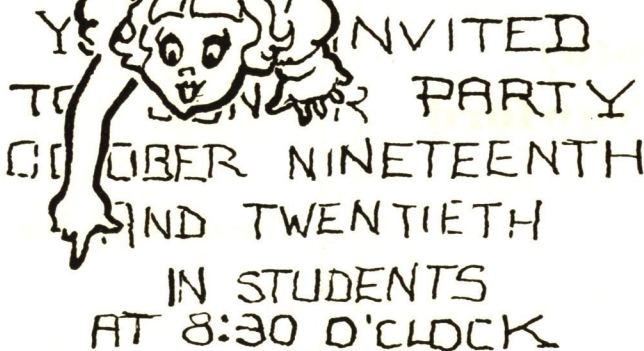 INVITED
TO PARTY
OCTOBER NINETEENTH
AND TWENTIETH
IN STUDENTS
AT 8:30 O'CLOCK